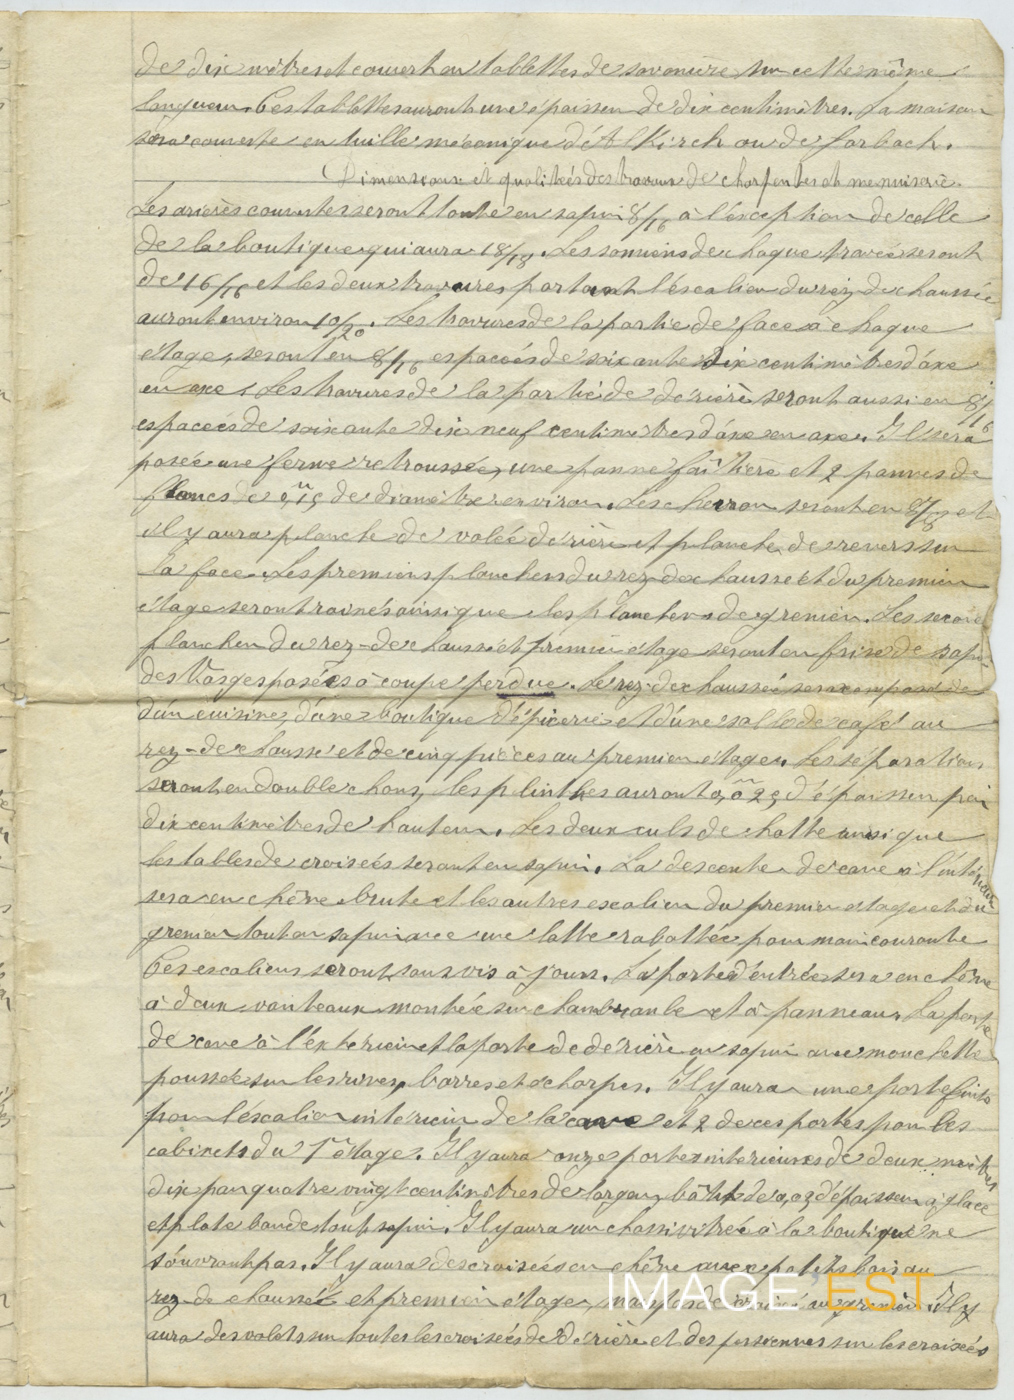 de dix mètres et couvert en tablettes de savonière sur cette même
longueur. Ces tablettes auront une épaisseur de dix centimètres. La maison
sera couverte en tuille mécanique d'Altkirch ou de forbach.
Dimensions et qualitées des travaux de charpentes et menuiserie.
Les arierès courintes seront toute en sapin 8/16 à l'éxception de celle
de la boutique qui aura 18/18. Les somiers de chaque travée seront
de 16/16 et les deux travures portant l'éscalier du rez de chaussée
auront environ 10/20. Les travures de la partie de face à chaque
étage, seront en 8/16 espacées de soixante dix centimètres d'axe
en axe, Les travures de la partie de dérière seront aussi en 8/16
espacées de soixante dix neuf centimètres d'axe en axe. Il sera
posée une ferme retroussée, une panne faîtière et 2 pannes de
flancs de 0,m15 de diamètre environ. Les chevron seront en 8/8 et
il y aura planche de volée dérière et planche de revers sur
la face. Les premiers planchers du rez-de chaussé et du premier
étage seront rainés ainsi que les planchers de grenier. Les second
plancher du rez-de chaussé et premier étage seront en frise de sapin
des Vosges posées à coupe perdue. Le rez-de chaussée sera composé de
d'un cuisine, d'une boutique d'épicerie et d'une salle de café au
rez-de chaussé et de cinq pièces au premier étage. Les séparations
seront en double chons, les plinthes auront 0,m025 d'épaisseur par
dix centimètres de hauteur. Les deux culs de hotte ainsi que
les tables de croisées seront en sapin. La descente de cave à l'intérieur
sera en chêne brute et les autres escalier du premier étage et du
grenier tout en sapin avec une latte rabottée pour main courante
Ces escaliers seront sans vis à jours. La porte d'entrée sera en chêne
à deux vanteaux montée sur chambranle et à panneaux La porte
de cave à l'extérieur et la porte de dérière en sapin avec mouchette
poussée sur les rives, barres et écharpes. Il y aura une porte finte
pour l'éscalier intérieur de la cave et 2 de ces portes pour les
cabinets du 1er étage. Il y aura onze portes intérieures de deux mètres
dix par quatre vingt centimètres de largeur, bâtit de 0,03 d'épaisseur à glace
et plate bande tout sapin. Il y aura un chassi vitrée à la boutique ne
s'ouvrant pas. Il y aura des croisées en chêne avec petits bois au
rez-de chaussée et premier étage, Il y
aura des volets sur toutes les croisées de dérière et des persiennes sur les croisées
IMAGE'EST